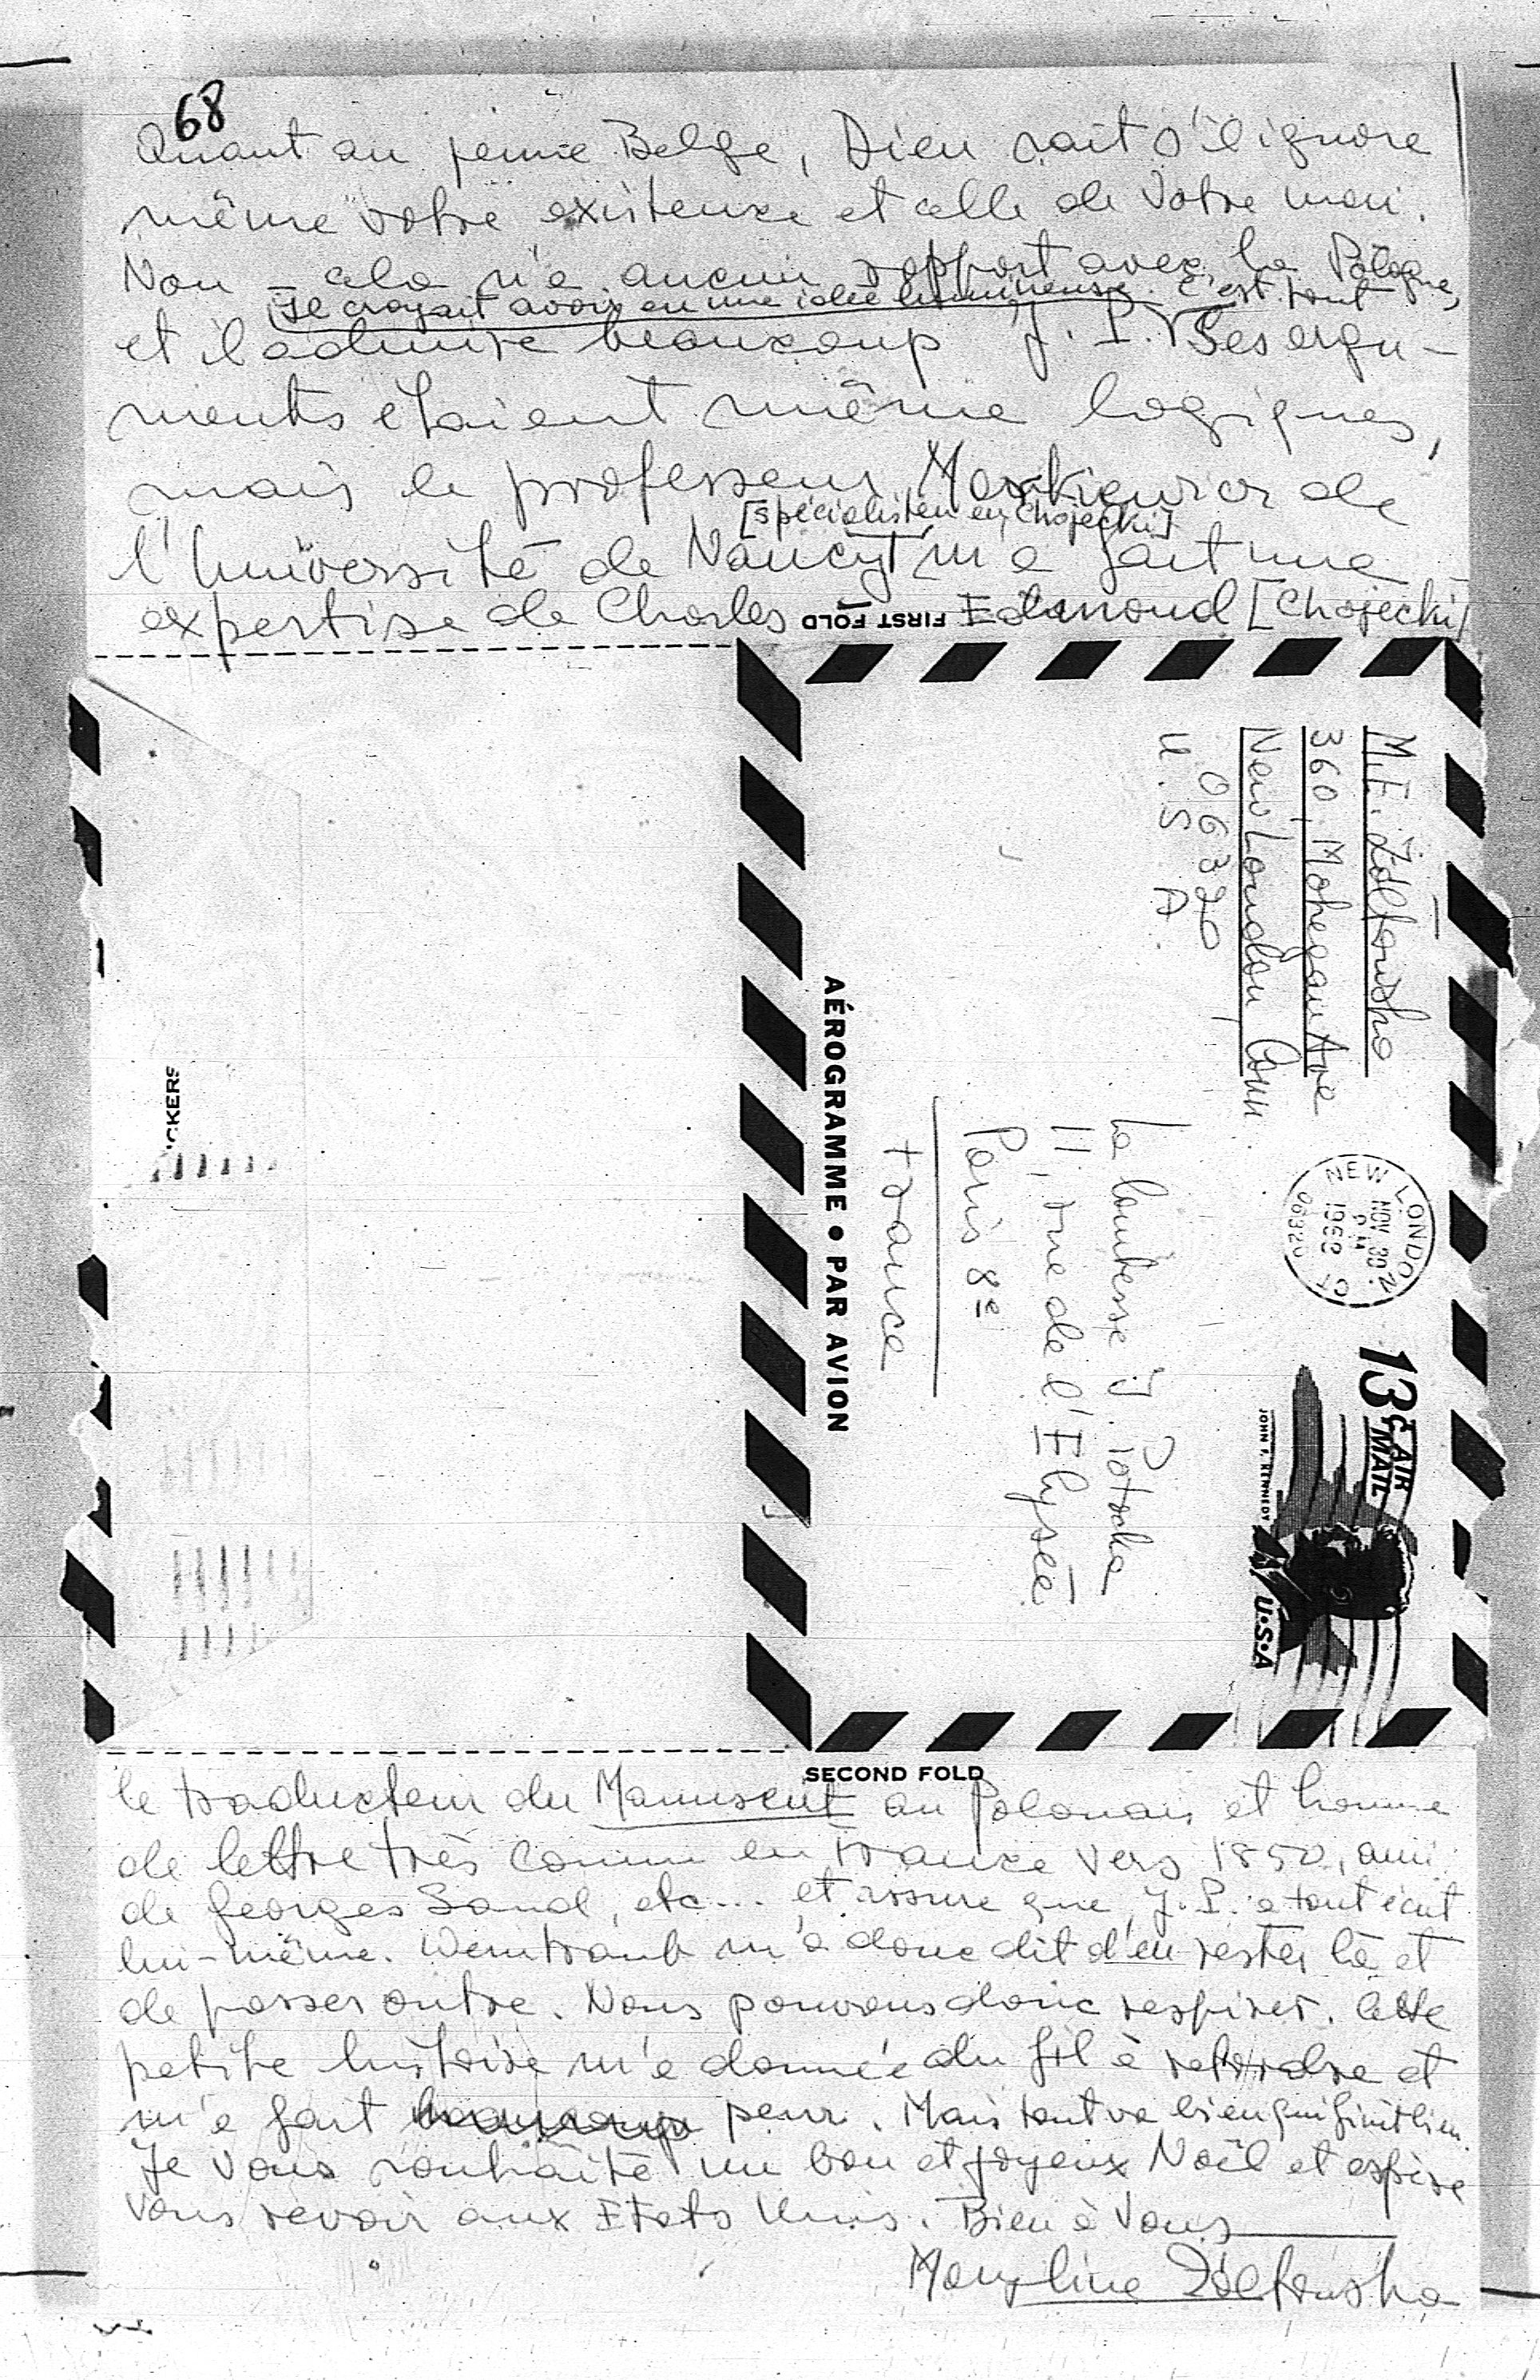 68
Quant au jeune Belge, Dieu sait s'il ignore
même votre existence et celle de votre mari.
Non - cela n'a aucun rapport avec la Pologne,
[Il croyait avoir eu une idée lumineuse. C'est tout
et il admire beaucoup J. P. Ses argu-
ments étaient même logiques,
mais le professeur Markiewicz de
[spécialiste en Chojecki]
l'Université de Nancy m'a fait une
expertise de Charles Edmond [Chojecki]
FIRST FOLD
M.E. Żółtowska
360, Mohegan Ave
New London, Conn
06320
U. S. A.
NEW LONDON, CT
NOV 30
PM
1968
06320
13¢ AIR MAIL
JOHN F. KENNEDY
U.S.A
La Comtesse J. Potocka
11, rue de l'Elysée
Paris 8e
France
AÉROGRAMME • PAR AVION
SECOND FOLD
le traducteur du Manuscrit au Polonais et homme
de lettre très connu en France vers 1850, ami
de Georges Sand, etc... et assure que J. P. a tout écrit
lui-même. Weintraub m'a donc dit d'en rester là et
de passer outre. Nous pouvons donc respirer. Cette
petite histoire m'a donnée du fil à retordre et
m'a fait beaucoup peur. Mais tout va bien qui finit bien.
Je vous souhaite un bon et joyeux Noël et espère
vous revoir aux Etats Unis. Bien à Vous
Maryline Żółtowska